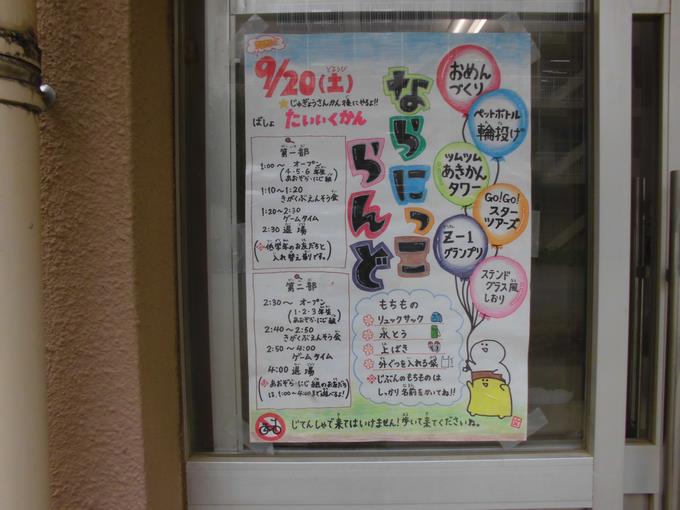 9/20(土)
どようび
★じゅぎょうさんかん後にやるよ!!
ばしょ たいいくかん
ならにっこ
らんど
第一部
1:00〜 オープン
(4・5・6年生
あおぞら・にじ組)
1:10〜1:20
きがくぶえんそう会
1:20〜2:30
ゲームタイム
2:30 退場
※低学年のお友だちと
入れ替え制です。
第二部
2:30〜 オープン
(1・2・3年生
あおぞら・にじ組)
2:40〜2:50
きがくぶえんそう会
2:50〜4:00
ゲームタイム
4:00 退場
※あおぞら・にじ組のお友だち
は、1:00〜4:00まで遊べるよ!
おめん
づくり
ペットボトル
輪投げ
ツムツム
あきかん
タワー
GO!GO!
スター
ツアーズ
Z-1
グランプリ
ステンド
グラス風
しおり
もちもの
リュックサック
水とう
上ばき
外ぐつを入れる袋
※じぶんのもちものは
しっかり名前をかいてね!!
じてんしゃで来てはいけません!歩いて来てくださいね。